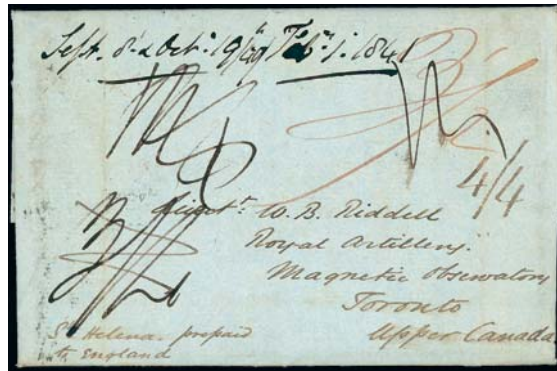 Sept. 8. & Octr. 19/40 Feby. 1. 1841
4/4
Lieutt. W. B. Riddell
Royal Artillery.
Magnetic Observatory
Toronto
Upper Canada
St. Helena. prepaid
to England